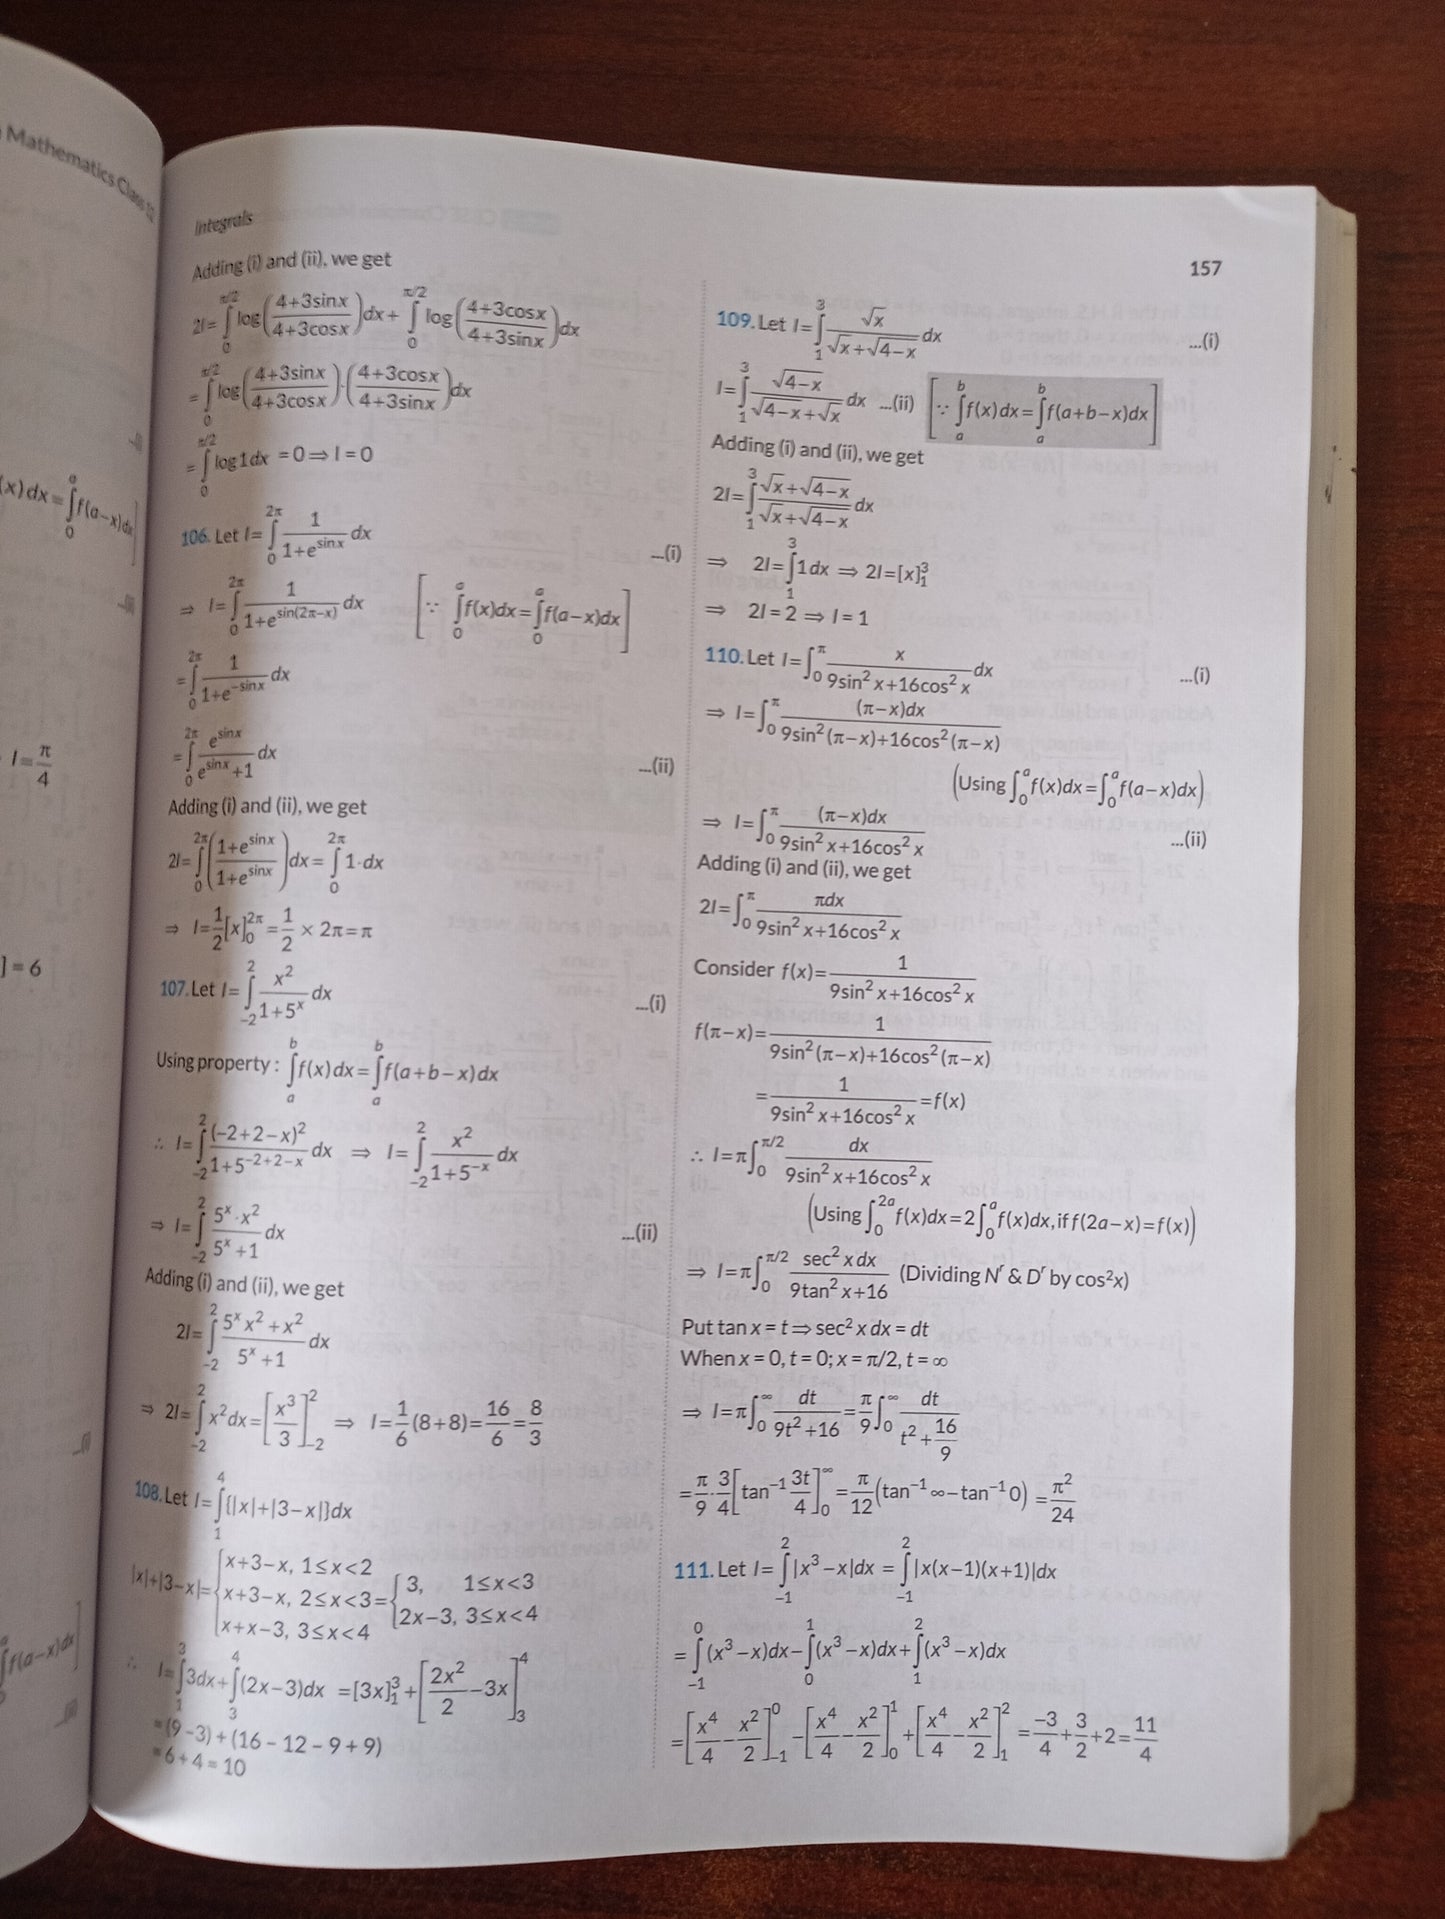 Mathematics Class 12
(x)dx=∫₀ᵃf(a−x)dx]
I=π/4
]=6
∫f(a−x)dx]
Integrals
157
Adding (i) and (ii), we get
2I=∫₀^{π/2}log((4+3sinx)/(4+3cosx))dx+∫₀^{π/2}log((4+3cosx)/(4+3sinx))dx
=∫₀^{π/2}log((4+3sinx)/(4+3cosx))·((4+3cosx)/(4+3sinx))dx
=∫₀^{π/2}log1dx =0⇒I=0
106. Let I=∫₀^{2π} 1/(1+e^{sinx}) dx ...(i)
⇒ I=∫₀^{2π} 1/(1+e^{sin(2π−x)}) dx [∵ ∫₀ᵃf(x)dx=∫₀ᵃf(a−x)dx]
=∫₀^{2π} 1/(1+e^{−sinx}) dx
=∫₀^{2π} e^{sinx}/(e^{sinx}+1) dx ...(ii)
Adding (i) and (ii), we get
2I=∫₀^{2π}((1+e^{sinx})/(1+e^{sinx}))dx=∫₀^{2π}1·dx
⇒ I=1/2[x]₀^{2π}=1/2×2π=π
107. Let I=∫₋₂² x²/(1+5ˣ) dx ...(i)
Using property : ∫ₐᵇf(x)dx=∫ₐᵇf(a+b−x)dx
∴ I=∫₋₂² (−2+2−x)²/(1+5^{−2+2−x}) dx ⇒ I=∫₋₂² x²/(1+5^{−x}) dx
⇒ I=∫₋₂² (5ˣ·x²)/(5ˣ+1) dx ...(ii)
Adding (i) and (ii), we get
2I=∫₋₂² (5ˣx²+x²)/(5ˣ+1) dx
⇒ 2I=∫₋₂² x²dx=[x³/3]₋₂² ⇒ I=1/6(8+8)=16/6=8/3
108. Let I=∫₁⁴{|x|+|3−x|}dx
|x|+|3−x|={x+3−x, 1≤x<2
x+3−x, 2≤x<3={3, 1≤x<3
x+x−3, 3≤x<4 2x−3, 3≤x<4
∴ I=∫₁³3dx+∫₃⁴(2x−3)dx =[3x]₁³+[2x²/2−3x]₃⁴
=(9−3)+(16−12−9+9)
=6+4=10
109. Let I=∫₁³ √x/(√x+√(4−x)) dx ...(i)
I=∫₁³ √(4−x)/(√(4−x)+√x) dx ...(ii) [∵ ∫ₐᵇf(x)dx=∫ₐᵇf(a+b−x)dx]
Adding (i) and (ii), we get
2I=∫₁³ (√x+√(4−x))/(√x+√(4−x)) dx
⇒ 2I=∫₁³1dx ⇒ 2I=[x]₁³
⇒ 2I=2⇒I=1
110. Let I=∫₀^π x/(9sin²x+16cos²x) dx ...(i)
⇒ I=∫₀^π (π−x)dx/(9sin²(π−x)+16cos²(π−x))
(Using ∫₀ᵃf(x)dx=∫₀ᵃf(a−x)dx)
⇒ I=∫₀^π (π−x)dx/(9sin²x+16cos²x) ...(ii)
Adding (i) and (ii), we get
2I=∫₀^π πdx/(9sin²x+16cos²x)
Consider f(x)=1/(9sin²x+16cos²x)
f(π−x)=1/(9sin²(π−x)+16cos²(π−x))
=1/(9sin²x+16cos²x)=f(x)
∴ I=π∫₀^{π/2} dx/(9sin²x+16cos²x)
(Using ∫₀^{2a}f(x)dx=2∫₀ᵃf(x)dx, if f(2a−x)=f(x))
⇒ I=π∫₀^{π/2} sec²xdx/(9tan²x+16) (Dividing Nʳ & Dʳ by cos²x)
Put tan x=t⇒sec²xdx=dt
When x=0, t=0; x=π/2, t=∞
⇒ I=π∫₀^∞ dt/(9t²+16)=π/9∫₀^∞ dt/(t²+16/9)
=π/9·3/4[tan⁻¹ 3t/4]₀^∞=π/12(tan⁻¹∞−tan⁻¹0)=π²/24
111. Let I=∫₋₁²|x³−x|dx=∫₋₁²|x(x−1)(x+1)|dx
=∫₋₁⁰(x³−x)dx−∫₀¹(x³−x)dx+∫₁²(x³−x)dx
=[x⁴/4−x²/2]₋₁⁰−[x⁴/4−x²/2]₀¹+[x⁴/4−x²/2]₁²=−3/4+3/2+2=11/4